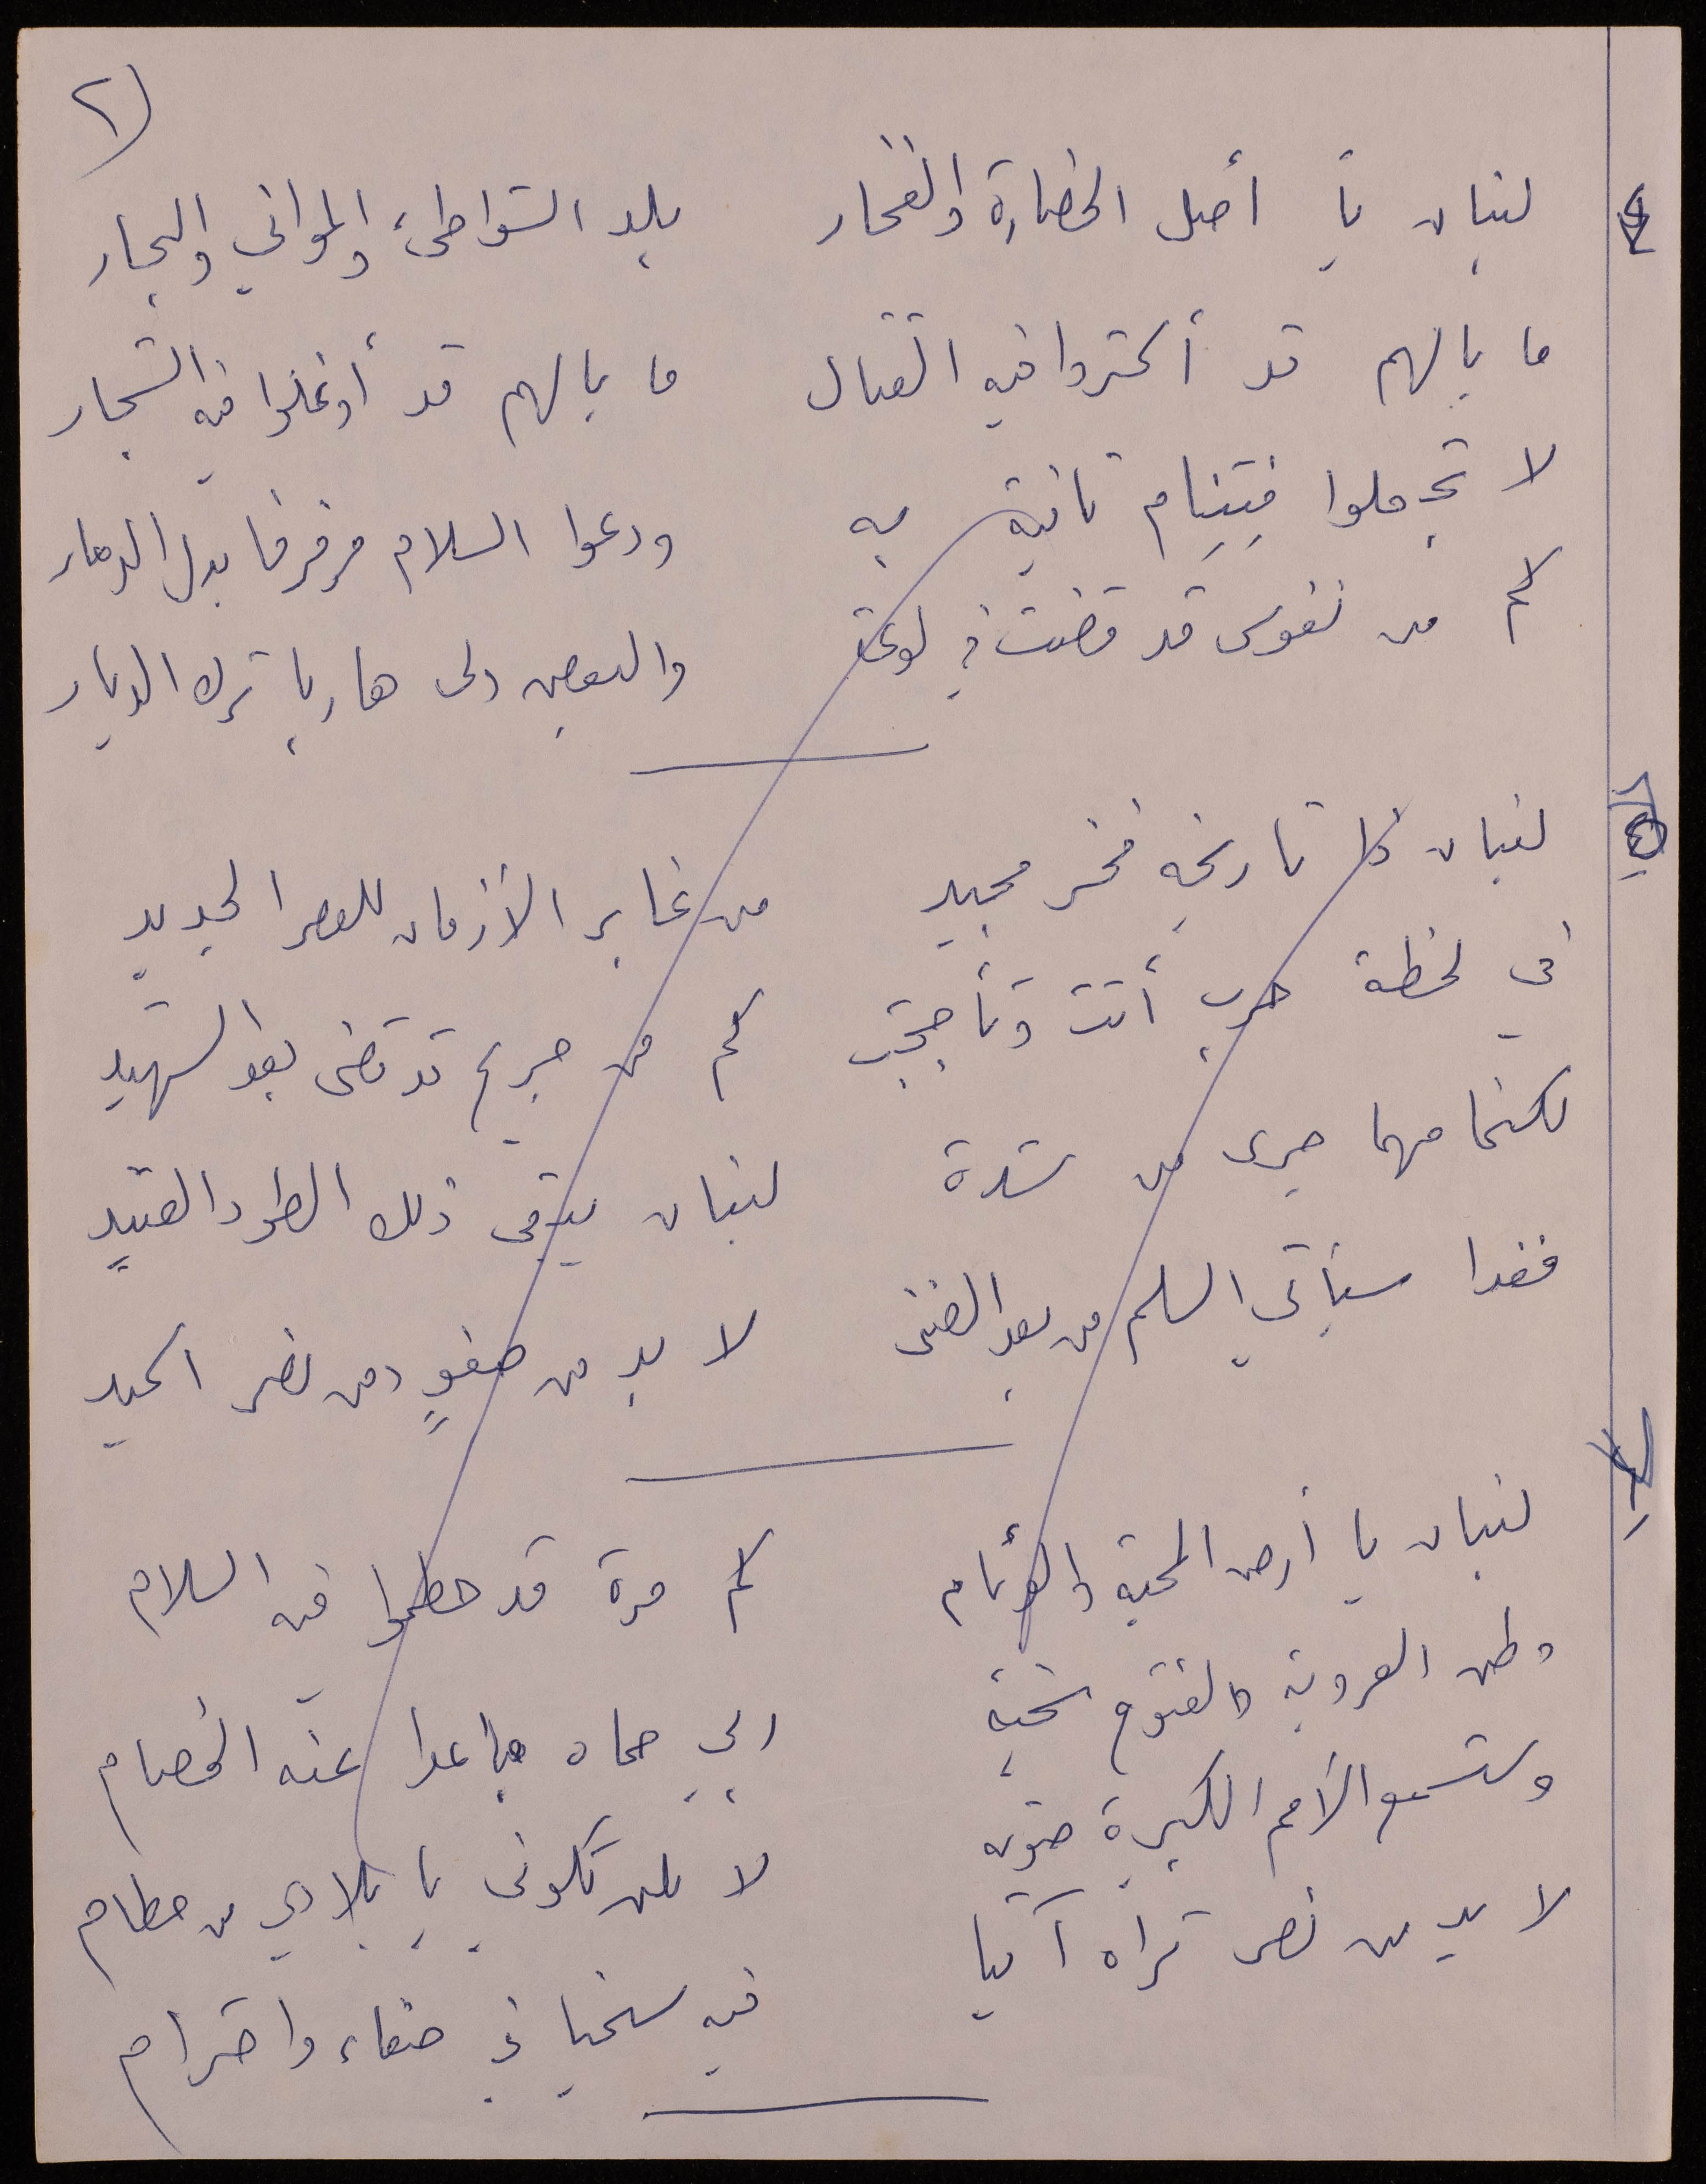 ٢)
لبنان يا أصل الحضارة والفخار بلد الشواطئ والمواني والبحار
ما بالهم قد أكثروا فيه القتال ما بالهم قد أوغلوا فيه الشجار
لا تجعلوا فيتنام ثانية به ودعوا السلام مرفرفا بدل الدمار
كم من نفوس قد قضت في لوعة والبعض ولى هاربا ترك الديار
لبنان ذا تاريخه فخر مجيد من غابر الأزمان للعصر الجديد
في لحظة حرب أتت وتأججت كم من جريح قد قضى بعد الشهيد
لكنما مهما جرى من شدة لبنان يبقى ذلك الطود العتيد
فغدا سيأتي السلم من بعد الضنى لا بد من صفوٍ ومن نصر أكيد
لبنان يا أرض المحبة والوئام كم مرة قد حطموا فيه السلام
وطن العروبة والفتوح تحية ربي حماه مباعدا عنه الخصام
وستسمع الأمم الكبيرة صوته لا لن تكوني يا بلادي من حطام
لا بد من نصر تراه آتيا فيه سنحيا في صفاء واحترام